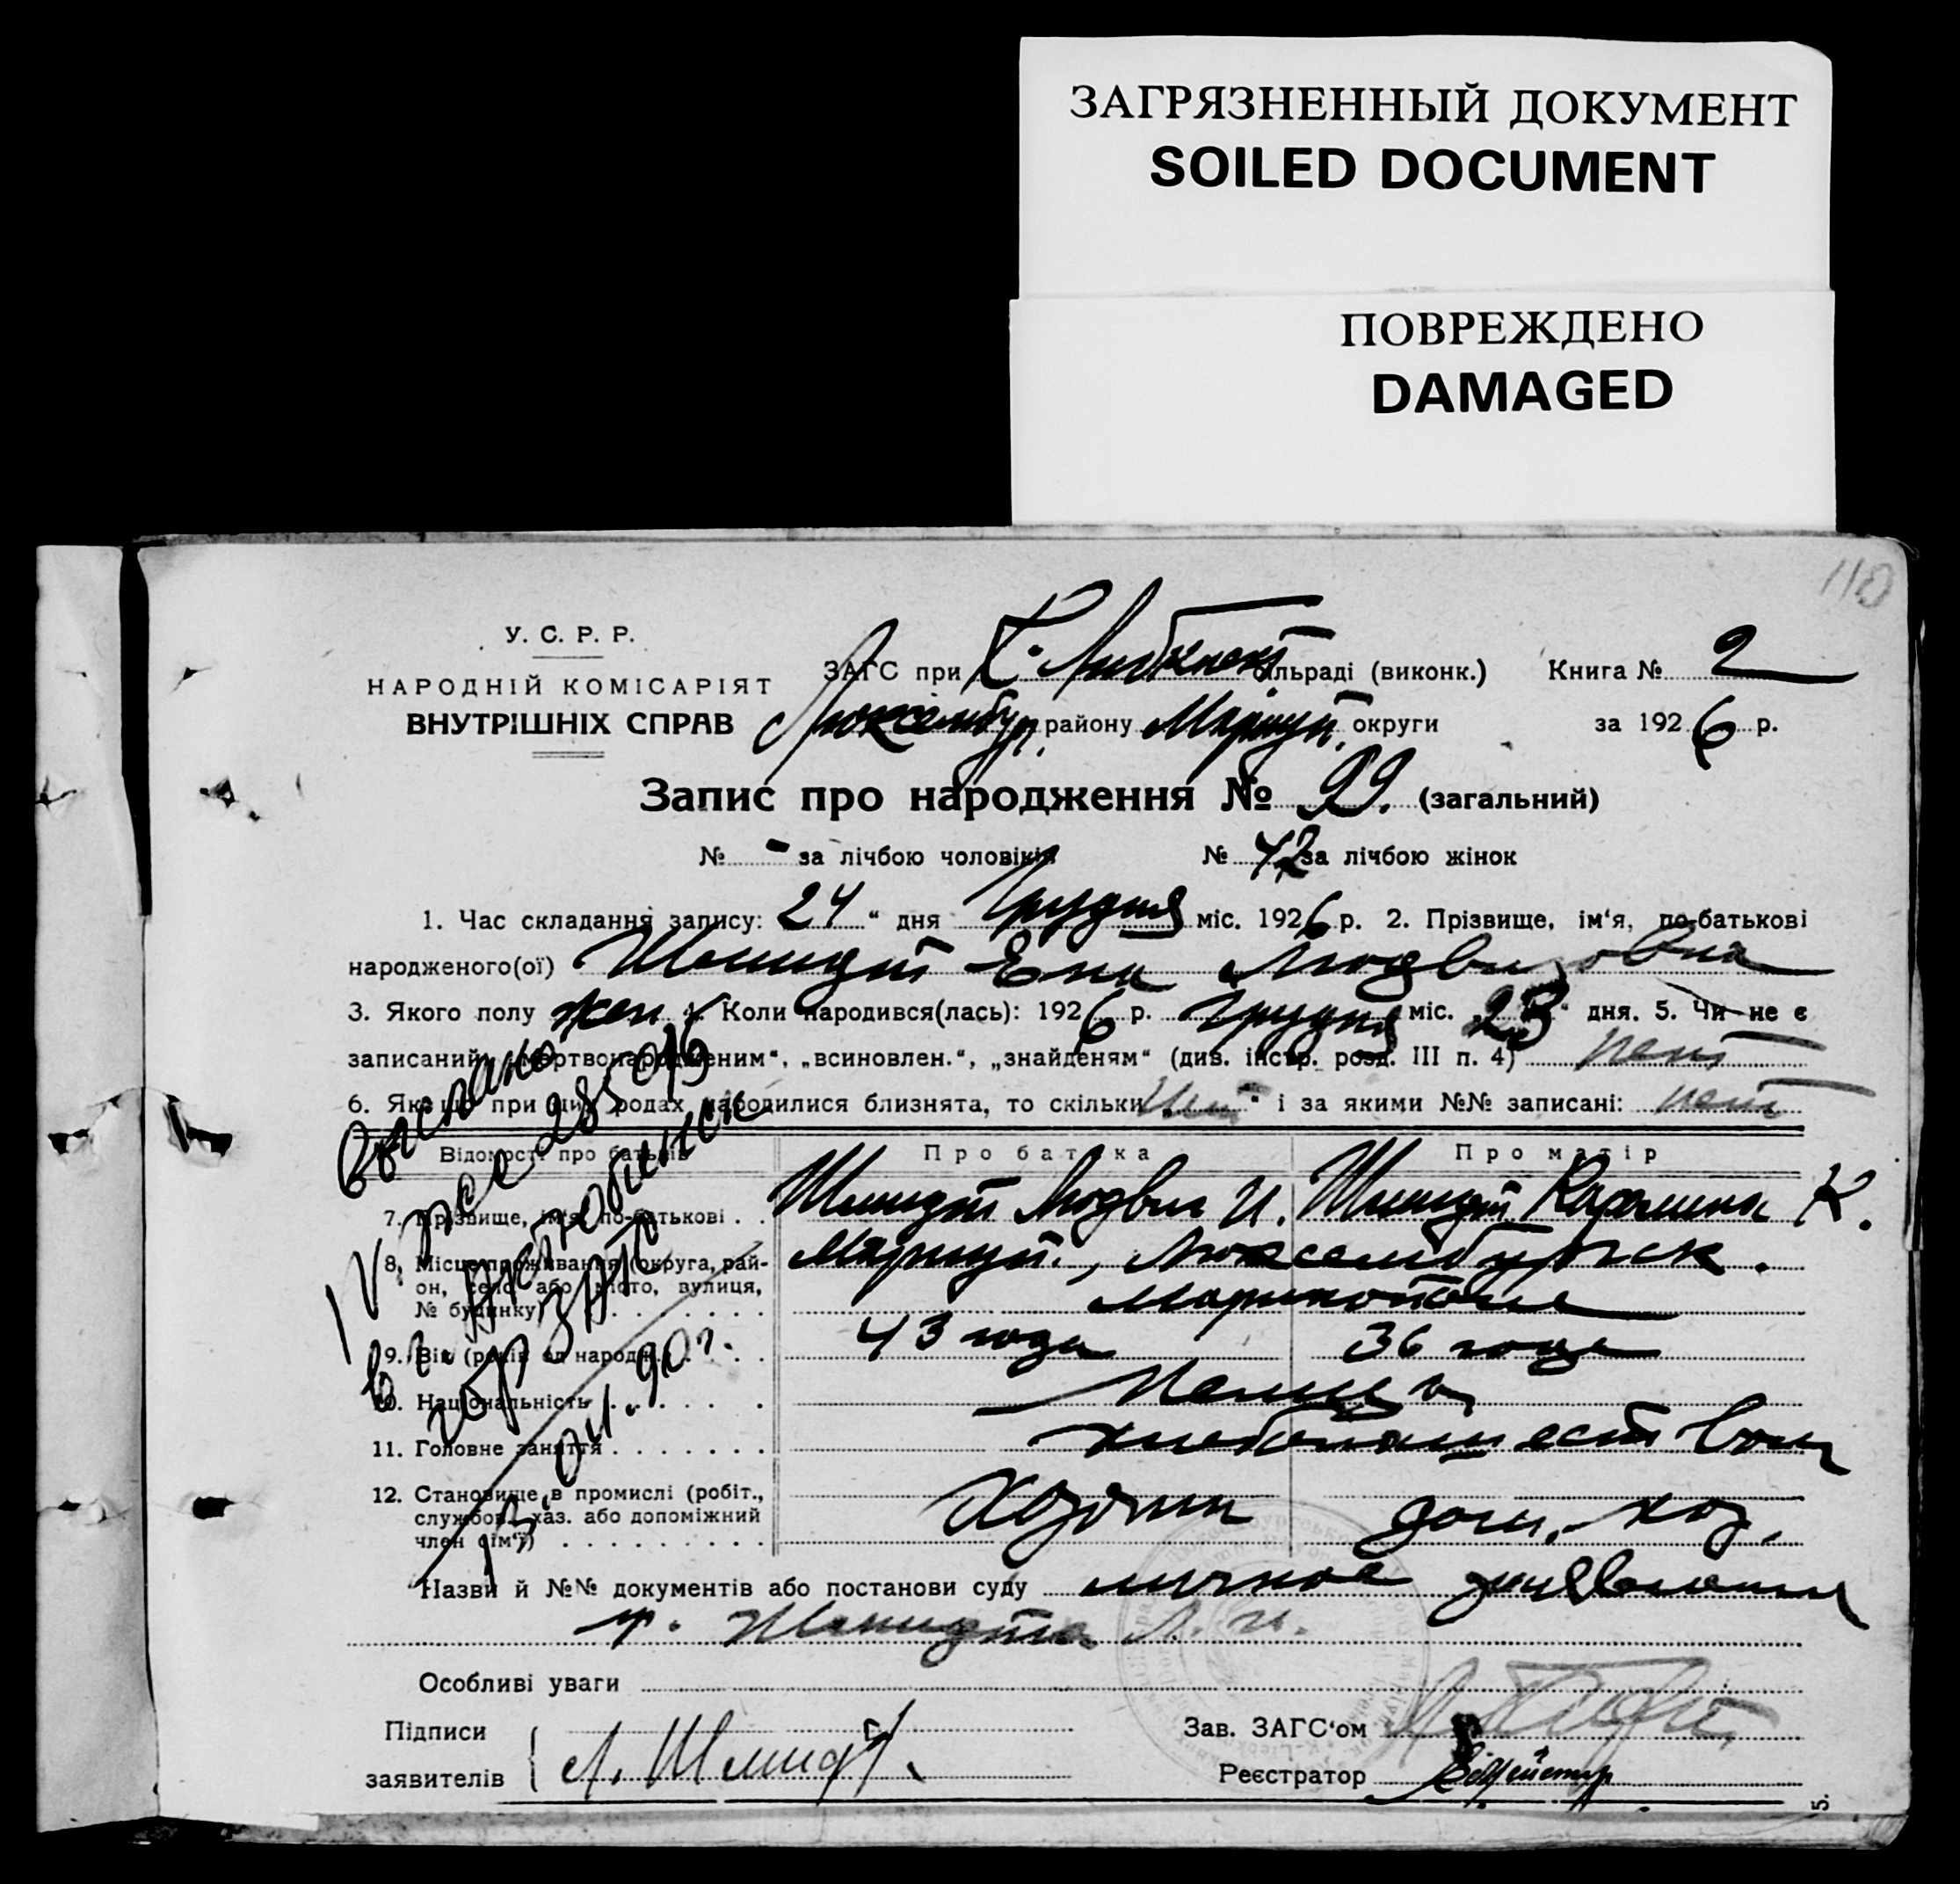 ЗАГРЯЗНЕННЫЙ ДОКУМЕНТ
SOILED DOCUMENT
ПОВРЕЖДЕНО
DAMAGED
110
У. С. Р. Р.
НАРОДНІЙ КОМІСАРІЯТ
ВНУТРІШНІХ СПРАВ
ЗАГС при К. Либкнехт сільраді (виконк.) Книга № 2
Люксембур. району Маріуп. округи за 1926 р.
Запис про народження № 99. (загальний)
№ - за лічбою чоловіків № 42 за лічбою жінок
1. Час складання запису: 24 “ дня Грудня міс. 1926 р. 2. Прізвище, ім‘я, по-батькові
народженого(ої) Шмидт Ена Людвиговна
3. Якого полу жен 4. Коли народився(лась): 1926 р. Грудня міс. 23 “ дня. 5. Чи не є
записаний „мертвонародженим“, „всиновлен.“, „знайденям“ (див. інстр. розд. III п. 4) нет
6. Якщо при цих родах народилися близнята, то скільки „ нет “ і за якими №№ записані: нет
Відомості про батьків Про батька Про матір
7. Прізвище, ім‘я, по-батькові . . Шмидт Людвиг И. Шмидт Каролина К.
8. Місце проживання (округа, рай-
он, село або місто, вулиця,
№ будинку) Мариуп., Люксембургск.
Мариентале
9. Вік (років од народж.) 43 года 36 года
10. Національність Немцы
11. Головне заняття хлебопашество
12. Становище в промислі (робіт.,
службов., хаз. або допоміжний
член сім‘ї) Хозяин дом. хоз.
Назви й №№ документів або постанови суду личное заявление
гр. Шмидта Л. И.
Особливі уваги
Підписи
заявителів Л. Шмидт.
Зав. ЗАГС‘ом
Реєстратор
5.
выслано
IV рсе 285016
в г. Актюбинск
гор ЗАГС
13.04.90 г.